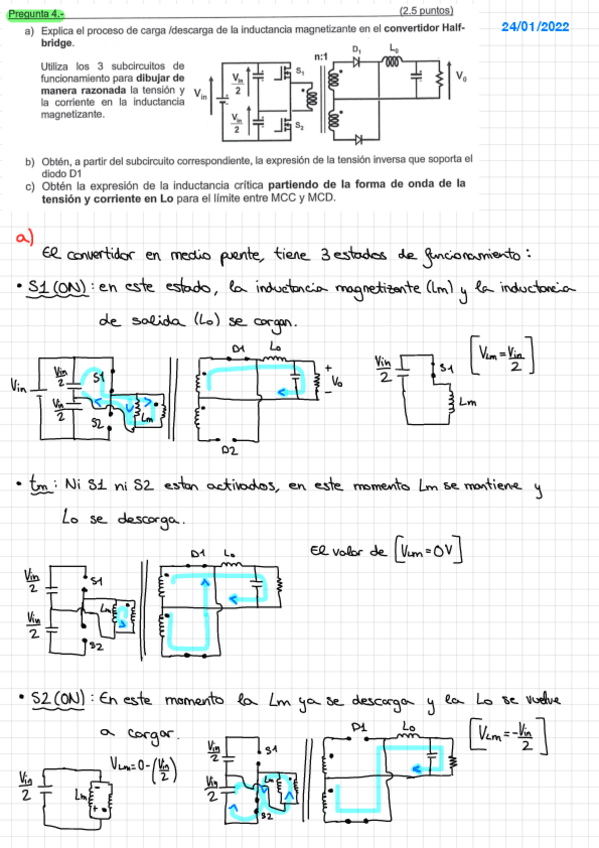 Pregunta 4.- (2.5 puntos)
24/01/2022
a) Explica el proceso de carga /descarga de la inductancia magnetizante en el convertidor Half-
bridge.
Utiliza los 3 subcircuitos de
funcionamiento para dibujar de
manera razonada la tensión y
la corriente en la inductancia
magnetizante.
Vin Vin/2 Vin/2 S1 S2 n:1 D1 Lo Vo
b) Obtén, a partir del subcircuito correspondiente, la expresión de la tensión inversa que soporta el
diodo D1
c) Obtén la expresión de la inductancia crítica partiendo de la forma de onda de la
tensión y corriente en Lo para el límite entre MCC y MCD.
a)
El convertidor en medio puente, tiene 3 estados de funcionamiento:
• S1 (ON): en este estado, la inductancia magnetizante (Lm) y la inductancia
de salida (Lo) se cargan.
Vin Vin/2 Vin/2 S1 S2 Lm D1 Lo + Vo - D2
Vin/2 S1 Lm [VLm = Vin/2]
• tm: Ni S1 ni S2 estan activados, en este momento Lm se mantiene y
Lo se descarga.
Vin/2 Vin/2 S1 Lm S2 D1 Lo
El valor de [VLm = 0V]
• S2 (ON): En este momento la Lm ya se descarga y la Lo se vuelve
a cargar.
VLm = 0 - (Vin/2)
Vin/2 Lm + -
Vin/2 Vin/2 S1 Lm S2 D1 Lo
[VLm = - Vin/2]